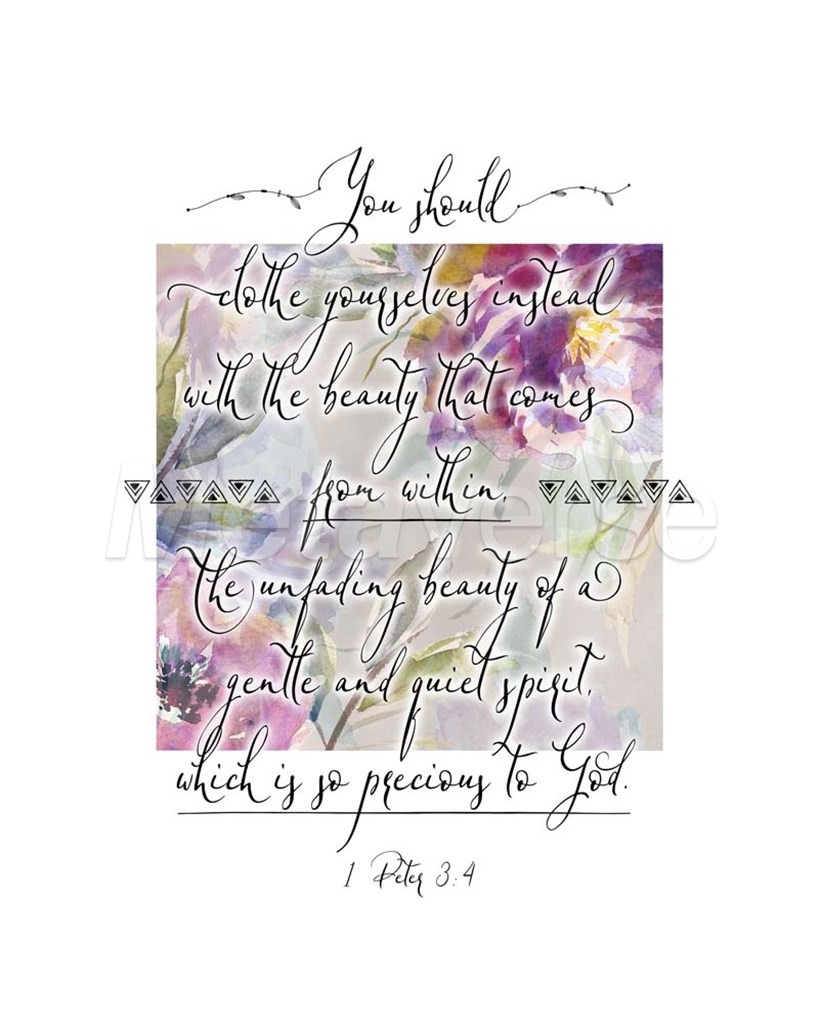 You should
clothe yourselves instead
with the beauty that comes
from within,
Metaverse
the unfading beauty of a
gentle and quiet spirit,
which is so precious to God.
1 Peter 3:4